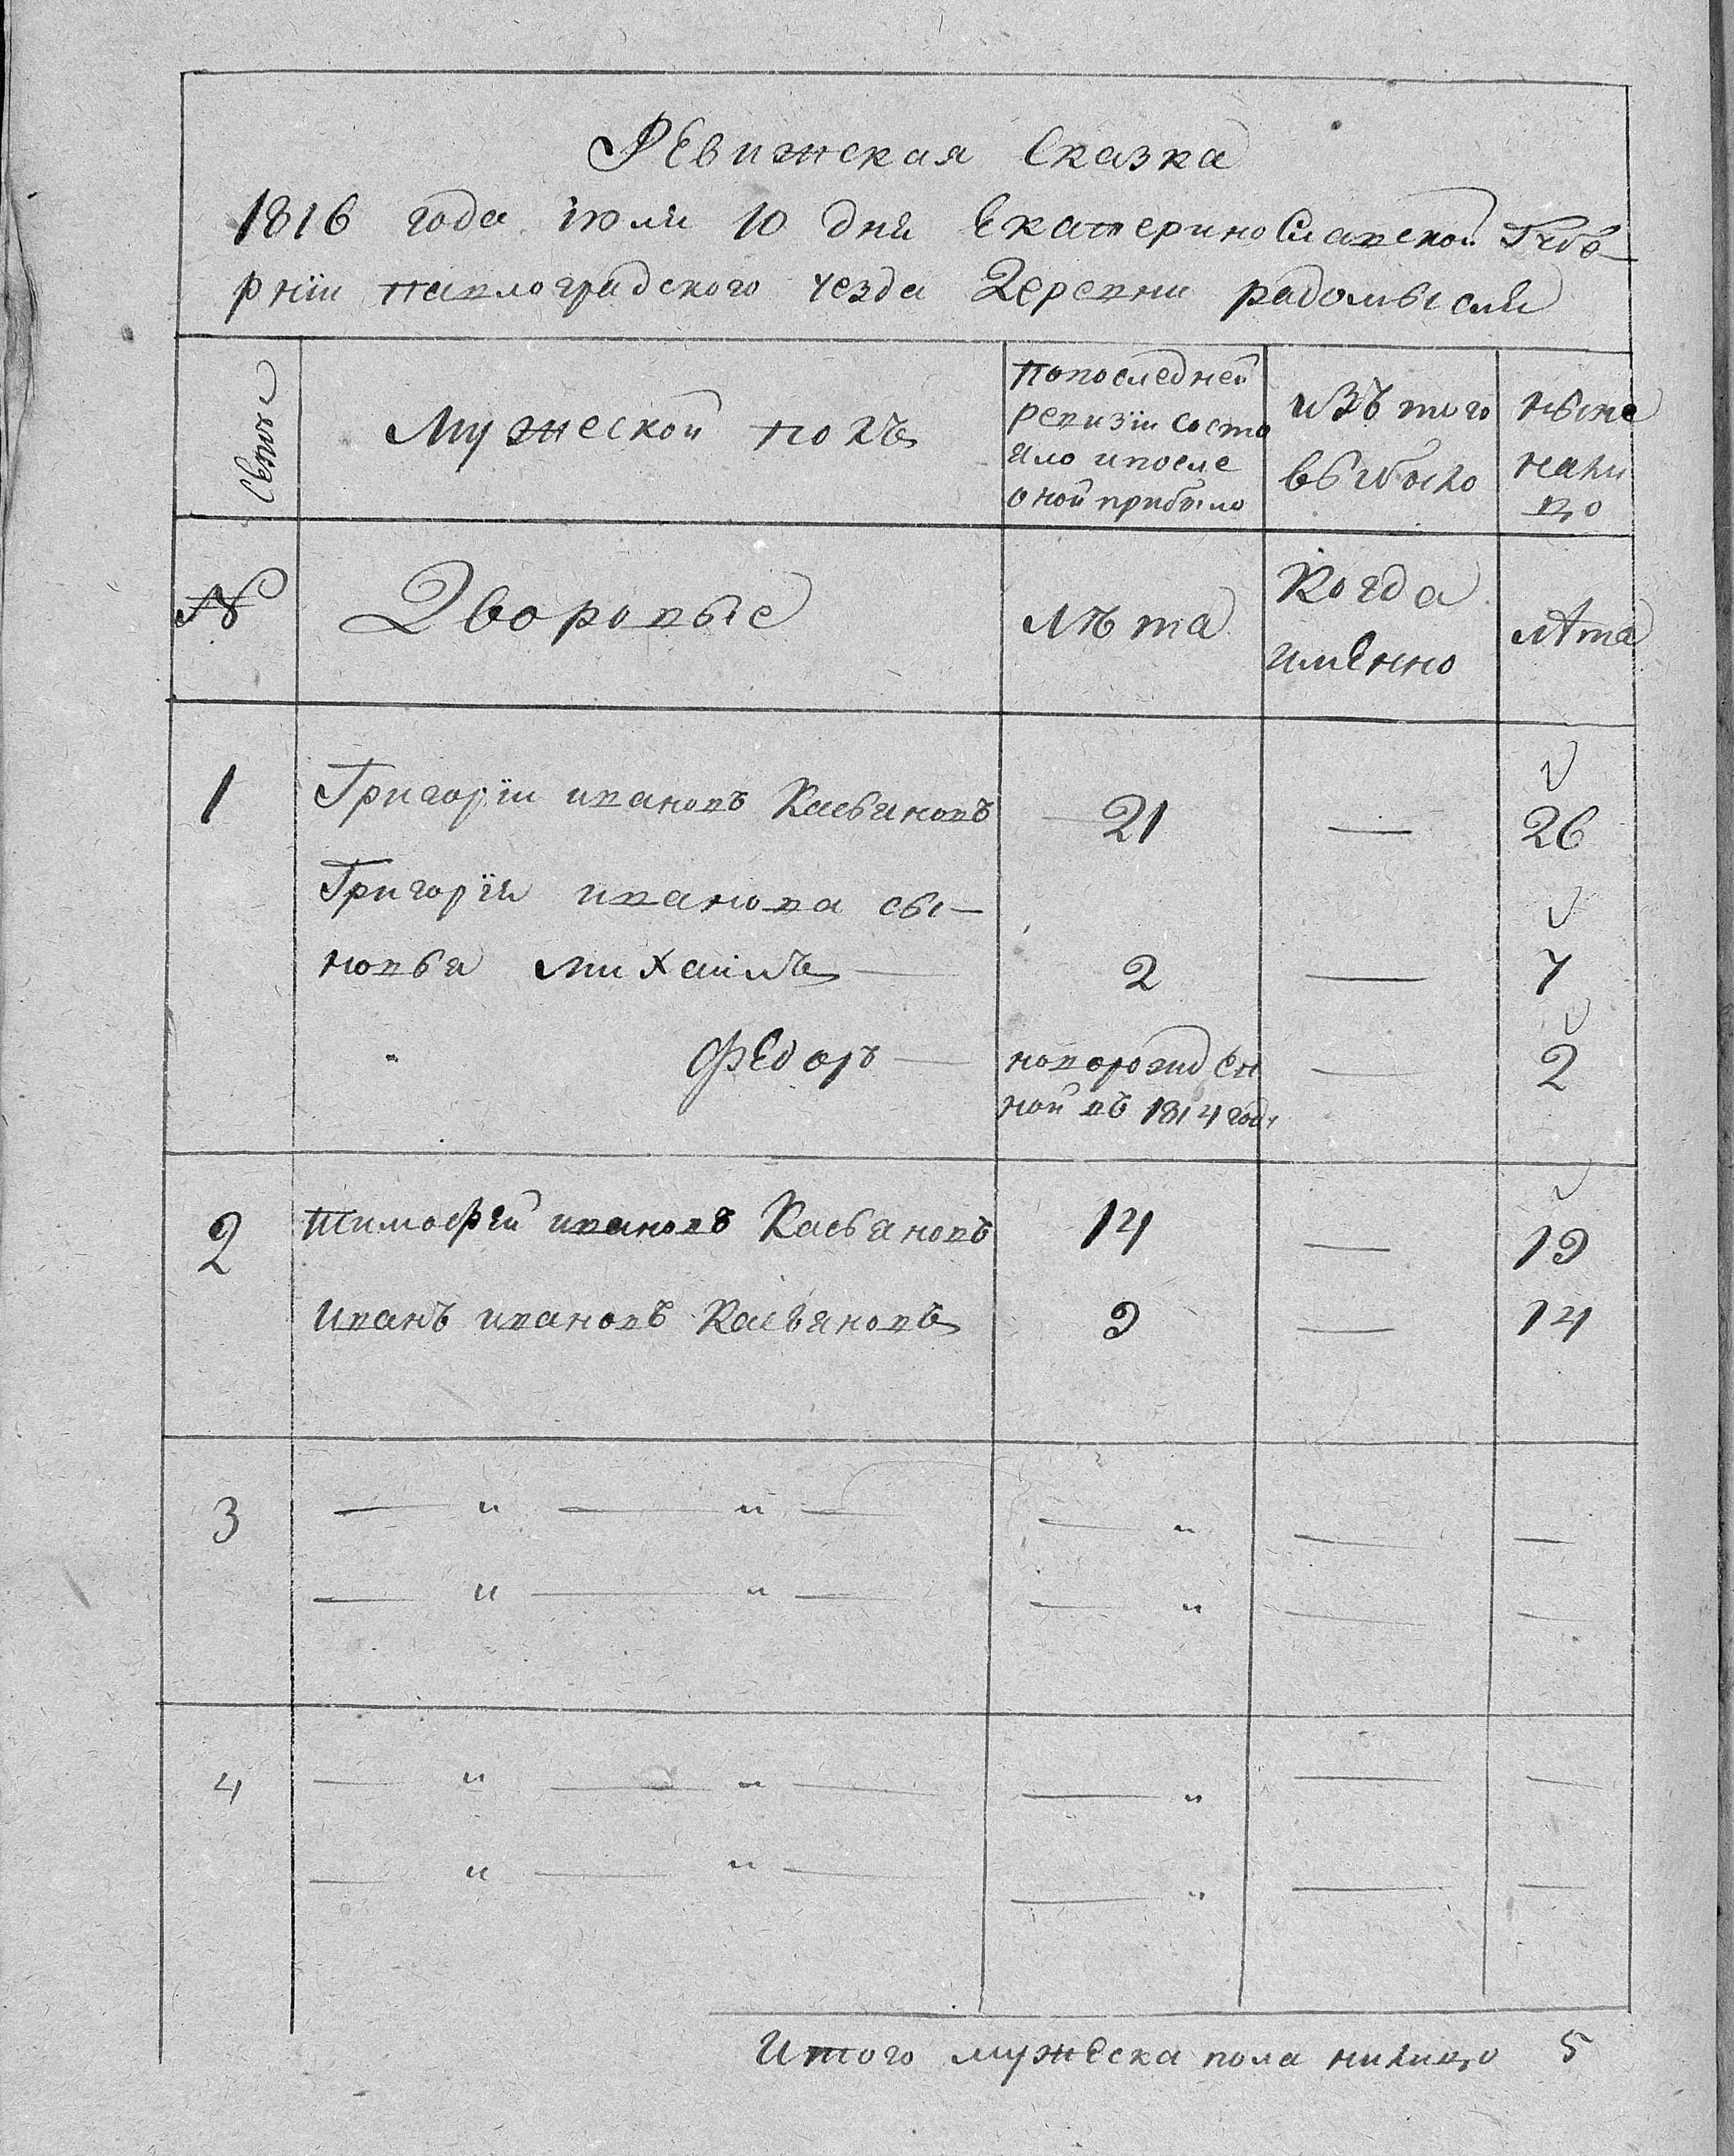 Ревижская Сказка
1816 года июля 10 дня Екатеринославской Губе-
рнïи павлоградского уезда Деревни радомысля
Мужеской полъ
попоследней
ревизïи состо
яло ипосле
оной прибыло
изъ того
выбыло
ныне
нали
цо
№
Дворовые
лѣта
Когда
имЕнно
лѣта
1 Григорïи ивановъ Касьяновъ 21 — 26
Григорïя иванова сы-
новья михаилъ — 2 — 7
ФЕдоръ — новорожден — 2
ной въ 1814 году
2 тимофей ивановъ Касьяновъ 14 — 19
иванъ ивановъ Касьяновъ 9 — 14
3 — " — " — — " — —
— " — " — — " — —
4 — " — " — — " — —
— " — " — — " — —
Итого мужЕска пола налицо 5